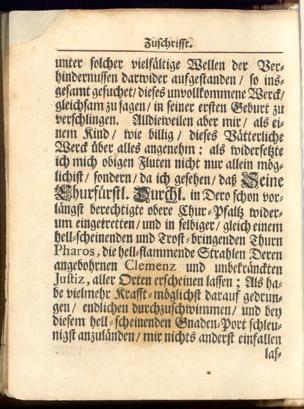 Zuschrifft.
unter solcher vielfältige Wellen der Ver-
hindernussen darwider aufgestanden / so ins-
gesamt gesuchet / dieses unvollkommene Werck /
gleichsam zu sagen / in seiner ersten Geburt zu
verschlingen. Alldieweilen aber mir / als ei-
nem Kind / wie billig / dieses Vätterliche
Werck über alles angenehm : als widersetzte
ich mich obigen Fluten nicht nur allein mög-
lichist / sondern / da ich gesehen / daß Seine
Churfürstl. Durchl. in Dero schon vor-
längst berechtigte obere Chur-Pfaltz wider-
um eingetretten / und in selbiger / gleich einem
hell-scheinenden und Trost-bringenden Thurn
Pharos, die hell-flammende Strahlen Deren
angebohrnen Clemenz und unbekränckten
Justiz, aller Orten erscheinen lassen ; Als ha-
be vielmehr Krafft-möglichst darauf gedrun-
gen / endlichen durchzuschwimmen / und bey
diesem hell-scheinenden Gnaden-Port schleu-
nigst anzuländen / mir nichts anderst einfallen
las-